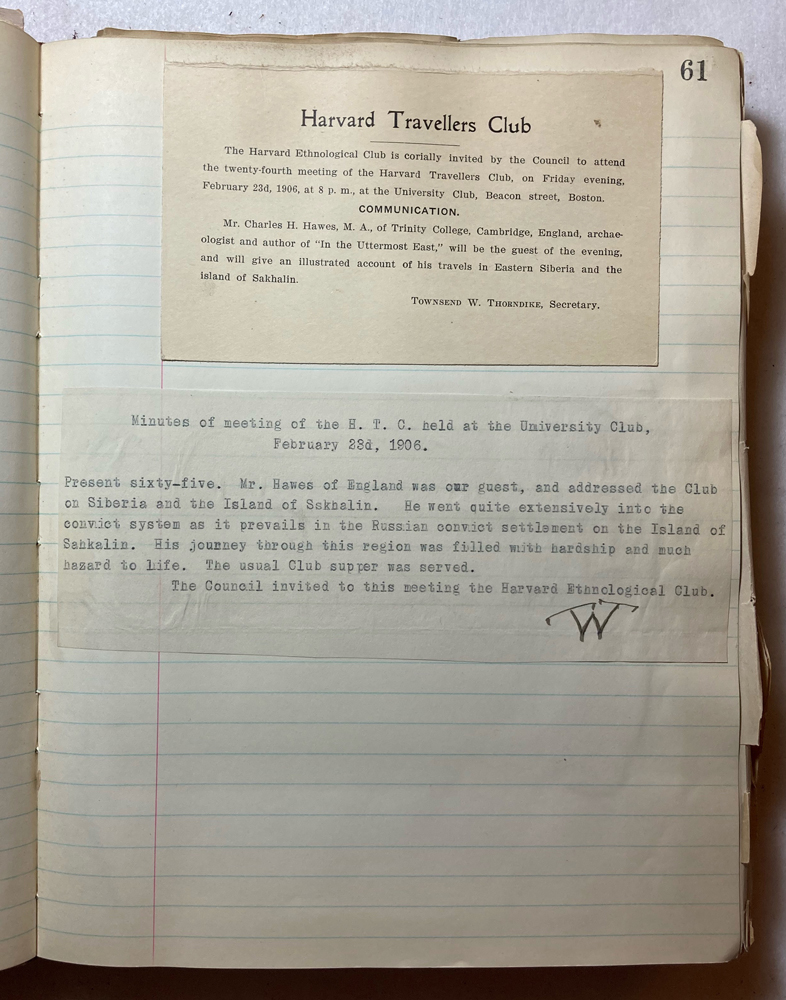 61
Harvard Travellers Club
The Harvard Ethnological Club is corially invited by the Council to attend
the twenty-fourth meeting of the Harvard Travellers Club, on Friday evening,
February 23d, 1906, at 8 p. m., at the University Club, Beacon street, Boston.
COMMUNICATION.
Mr. Charles H. Hawes, M. A., of Trinity College, Cambridge, England, archae-
ologist and author of "In the Uttermost East," will be the guest of the evening,
and will give an illustrated account of his travels in Eastern Siberia and the
island of Sakhalin.
Townsend W. Thorndike, Secretary.
Minutes of meeting of the H. T. C. held at the University Club,
February 23d, 1906.
Present sixty-five. Mr. Hawes of England was our guest, and addressed the Club
on Siberia and the Island of Sakhalin. He went quite extensively into the
convict system as it prevails in the Russian convict settlement on the Island of
Sahkalin. His journey through this region was filled with hardship and much
hazard to life. The usual Club supper was served.
The Council invited to this meeting the Harvard Ethnological Club.